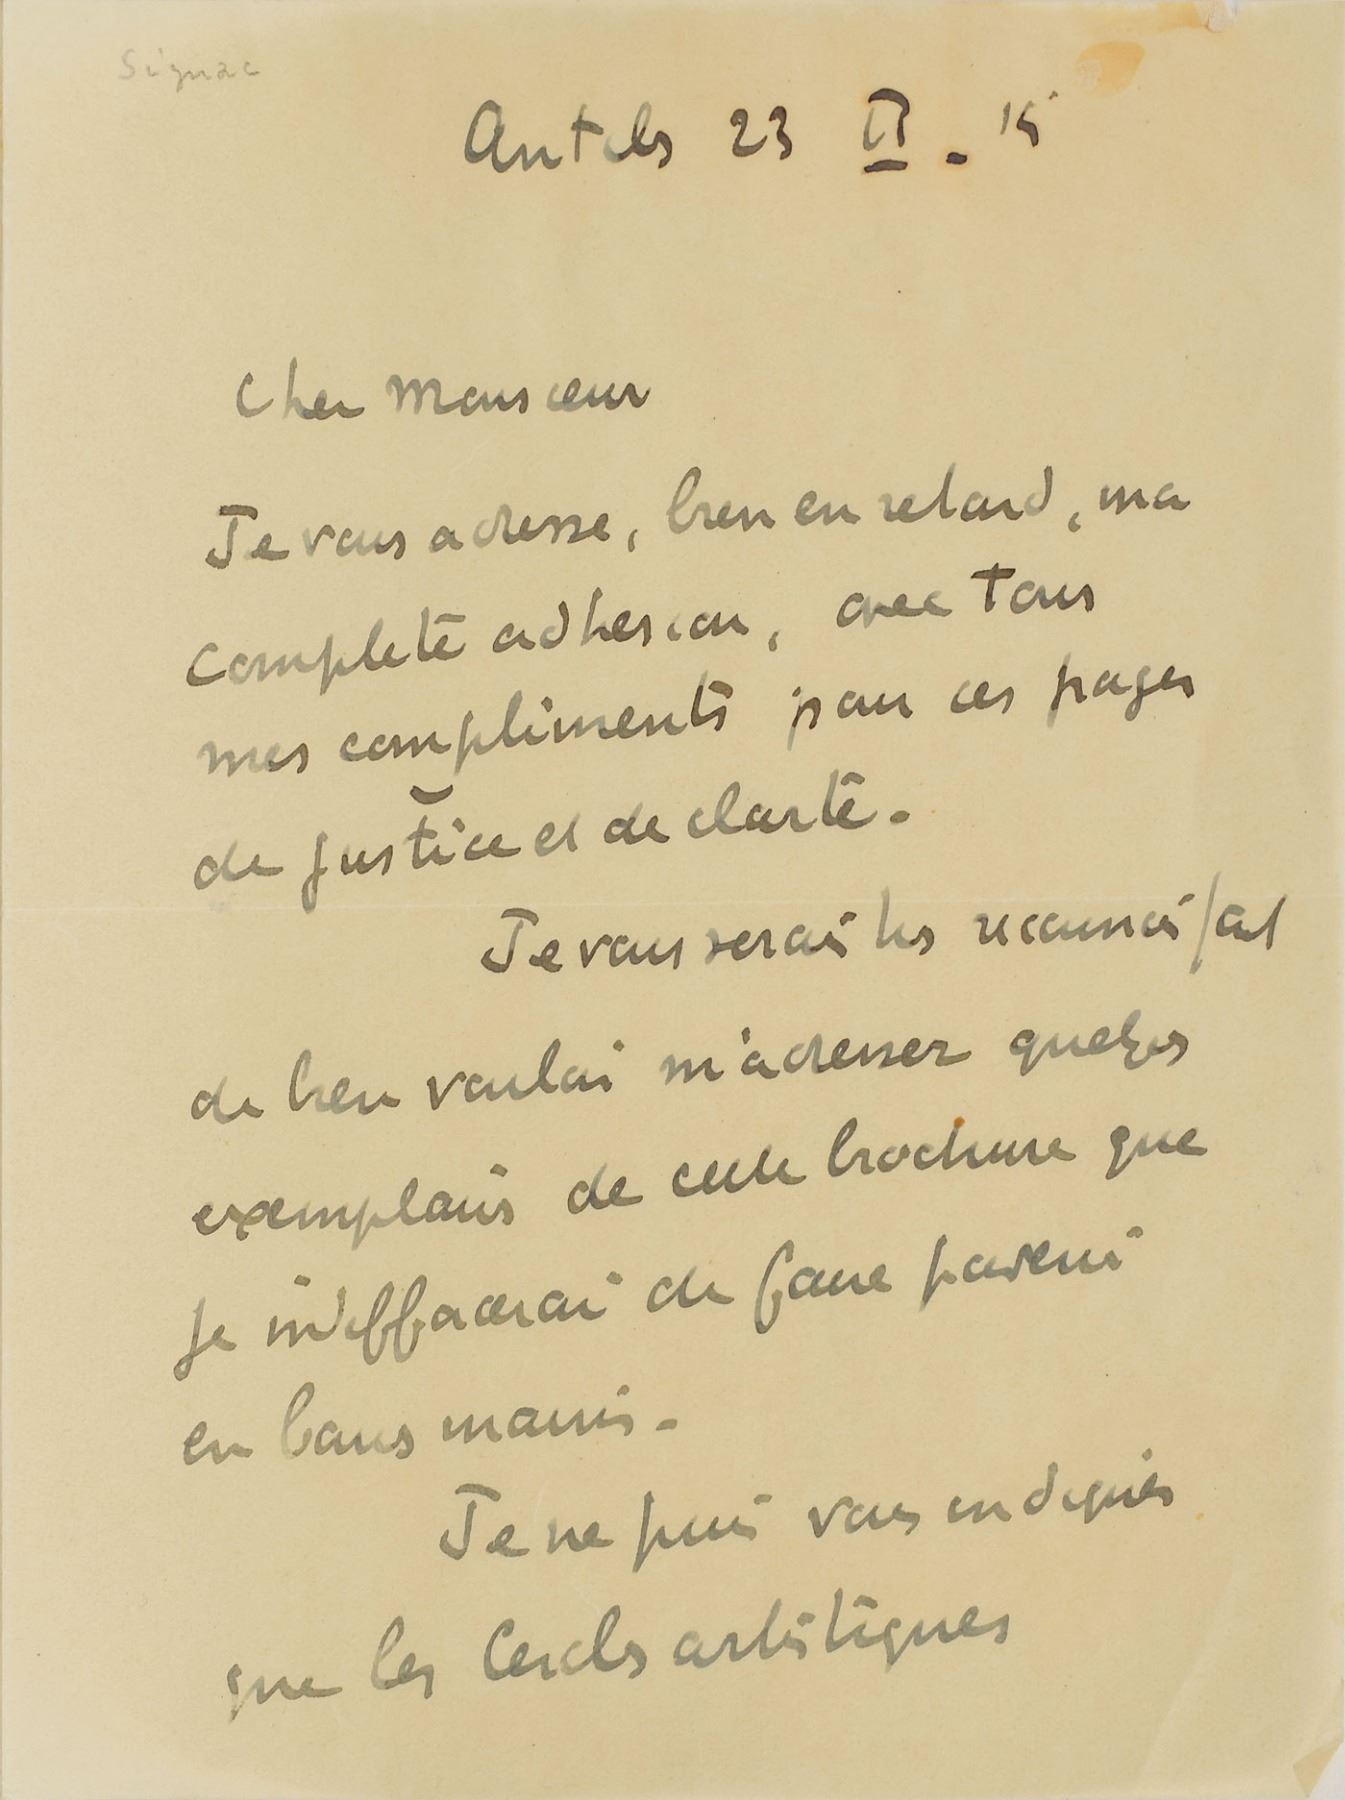 Signac
Antibes 23 II - 15
Cher Monsieur
Je vous adresse, bien en retard, ma
complète adhésion, avec tous
mes compliments pour ces pages
de justice et de clarté.
Je vous serais très reconnaissant
de bien vouloir m'adresser quelques
exemplaires de cette brochure que
je m'efforcerai de faire parvenir
en bonnes mains.
Je ne puis vous indiquer
que les Cercles artistiques